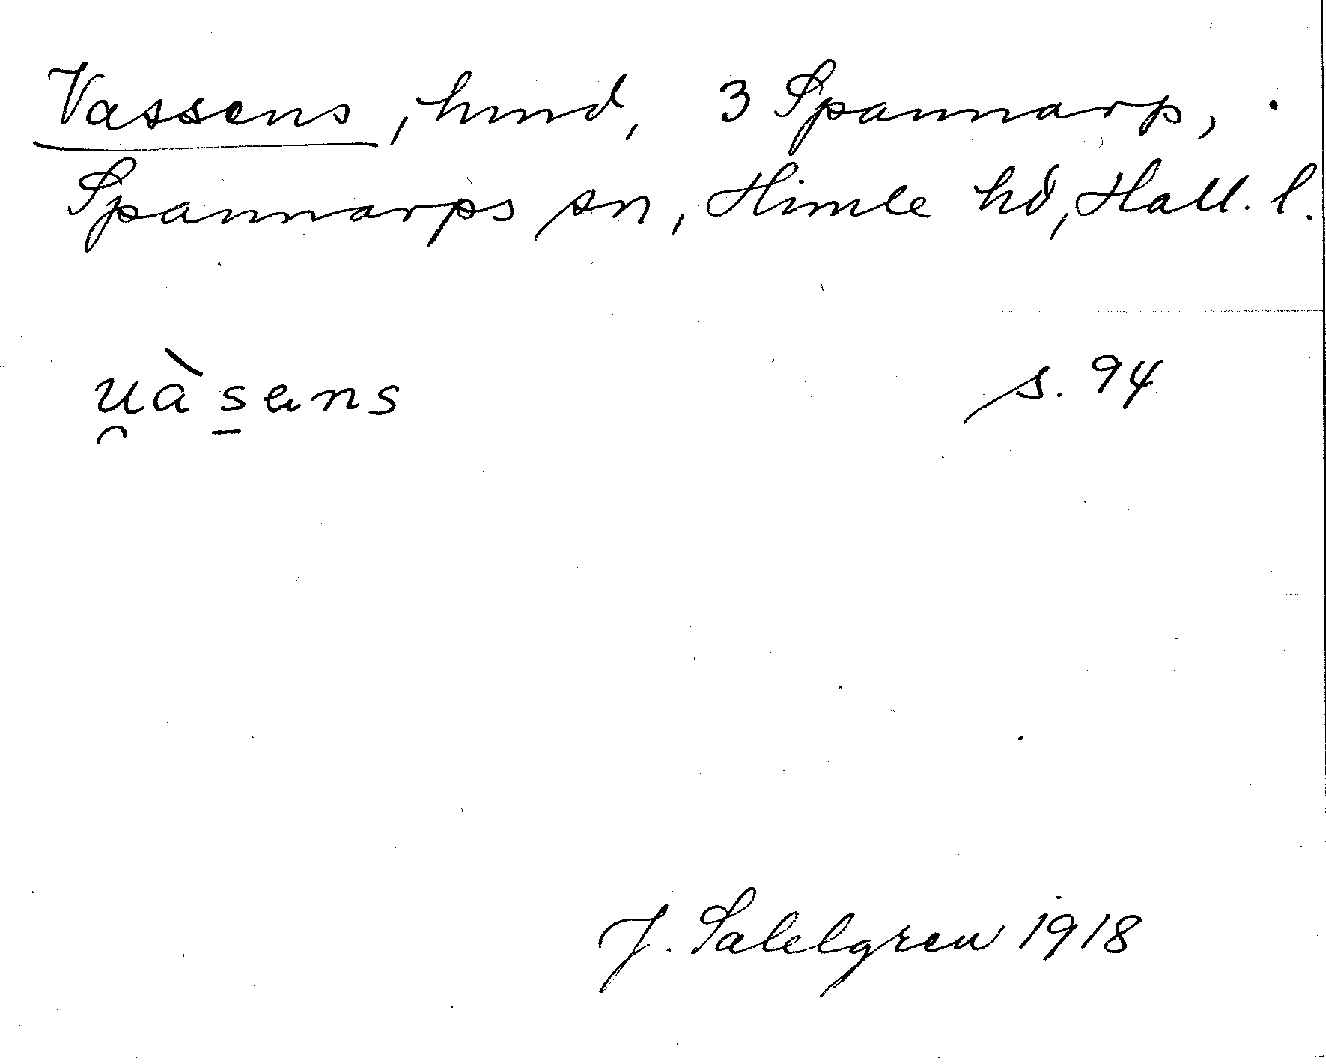 Vassens, hmd, 3 Spannarp,
Spannarps sn, Himle hd, Hall. l.
u̯às̠ens s. 94
J. Sahlgren 1918